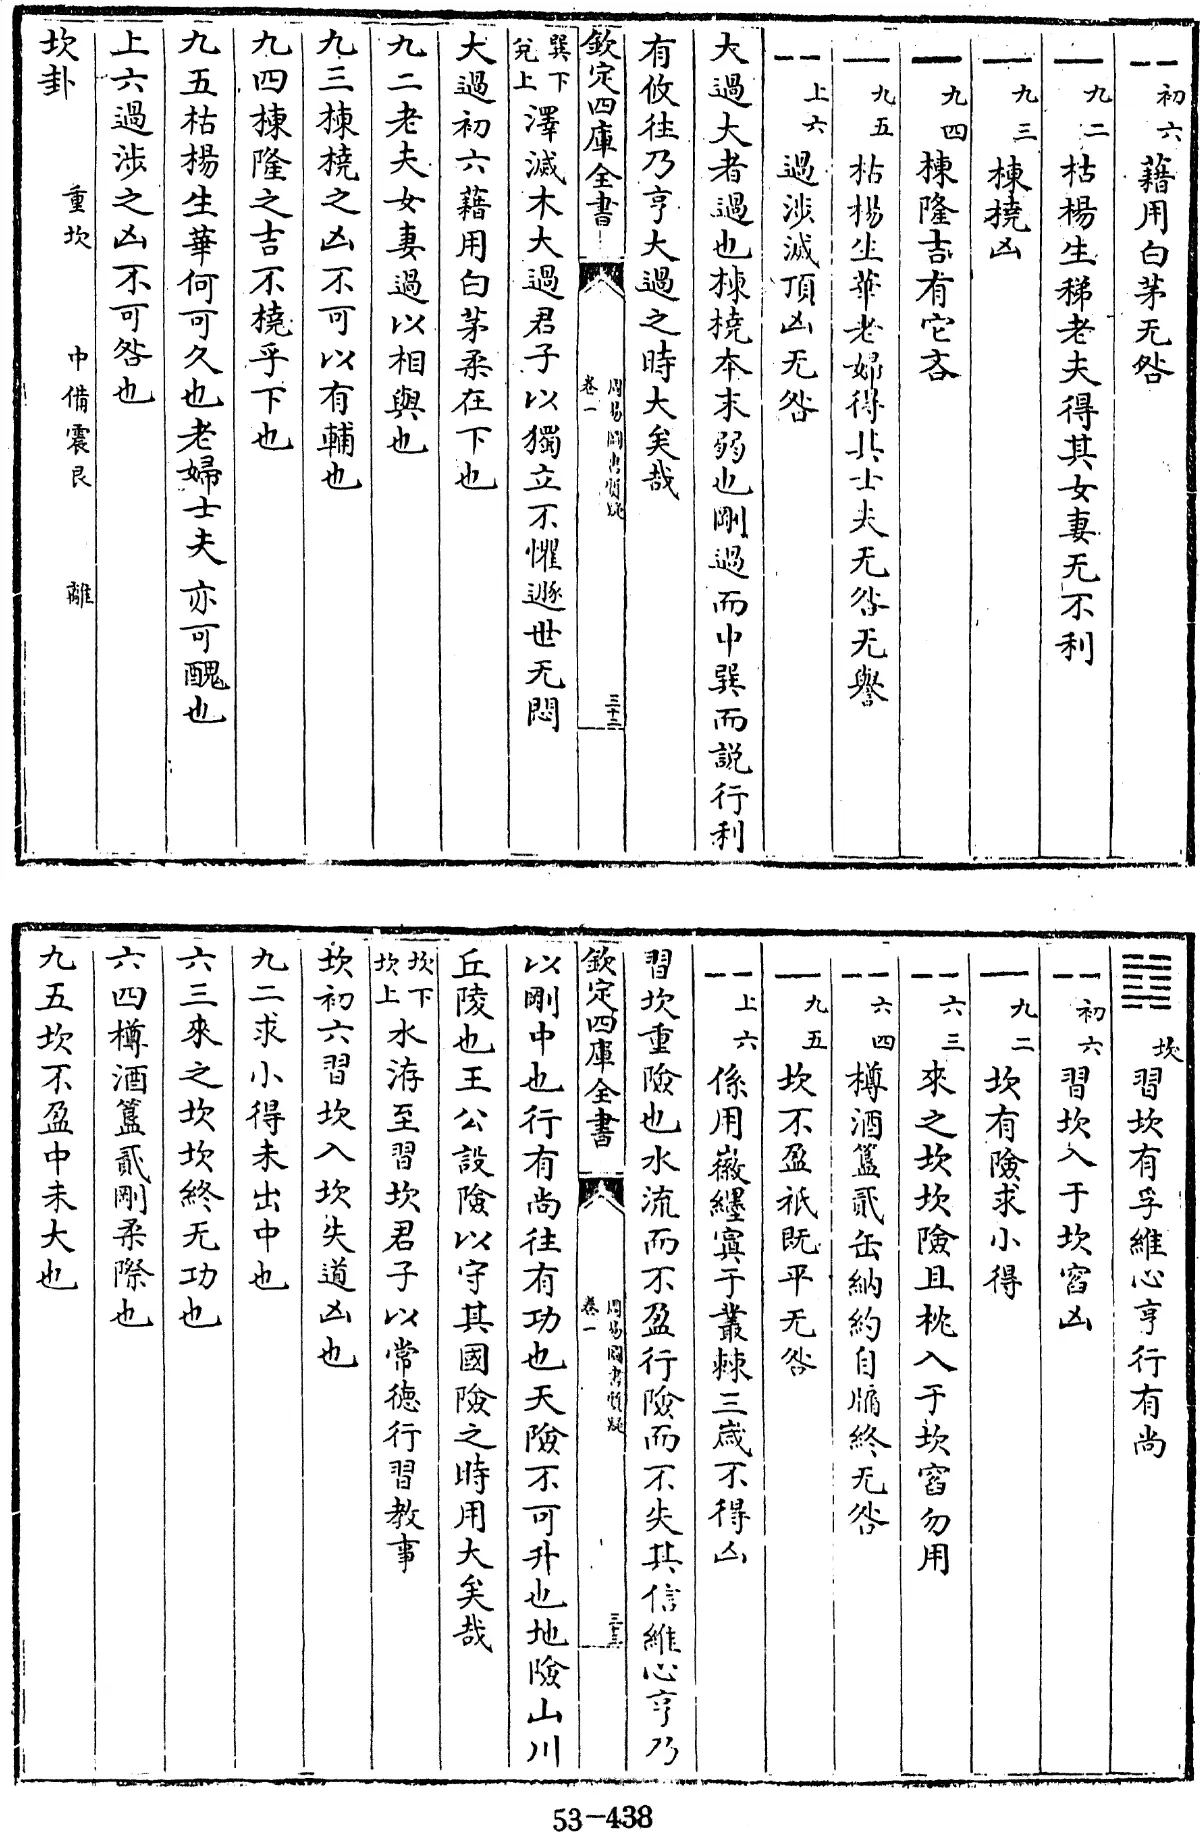 初六藉用白茅无咎
九二枯楊生稊老夫得其女妻无不利
九三棟橈凶
九四棟隆吉有它吝
九五枯楊生華老婦得其士夫无咎无譽
上六過涉滅頂凶无咎
大過大者過也棟橈本末弱也剛過而中巽而說行利
有攸往乃亨大過之時大矣哉
欽定四庫全書
周易圖書質疑
卷一
三十二
巽下
兌上
澤滅木大過君子以獨立不懼遯世无悶
大過初六藉用白茅柔在下也
九二老夫女妻過以相與也
九三棟橈之凶不可以有輔也
九四棟隆之吉不橈乎下也
九五枯楊生華何可久也老婦士夫亦可醜也
上六過涉之凶不可咎也
坎卦 重坎 中備震艮 離
坎習坎有孚維心亨行有尚
初六習坎入于坎窞凶
九二坎有險求小得
六三來之坎坎險且枕入于坎窞勿用
六四樽酒簋貳缶納約自牖終无咎
九五坎不盈祇既平无咎
上六係用徽纆寘于叢棘三歲不得凶
習坎重險也水流而不盈行險而不失其信維心亨乃
欽定四庫全書
周易圖書質疑
卷一
三十三
以剛中也行有尚往有功也天險不可升也地險山川
丘陵也王公設險以守其國險之時用大矣哉
坎下
坎上
水洊至習坎君子以常德行習教事
坎初六習坎入坎失道凶也
九二求小得未出中也
六三來之坎坎終无功也
六四樽酒簋貳剛柔際也
九五坎不盈中未大也
53-438